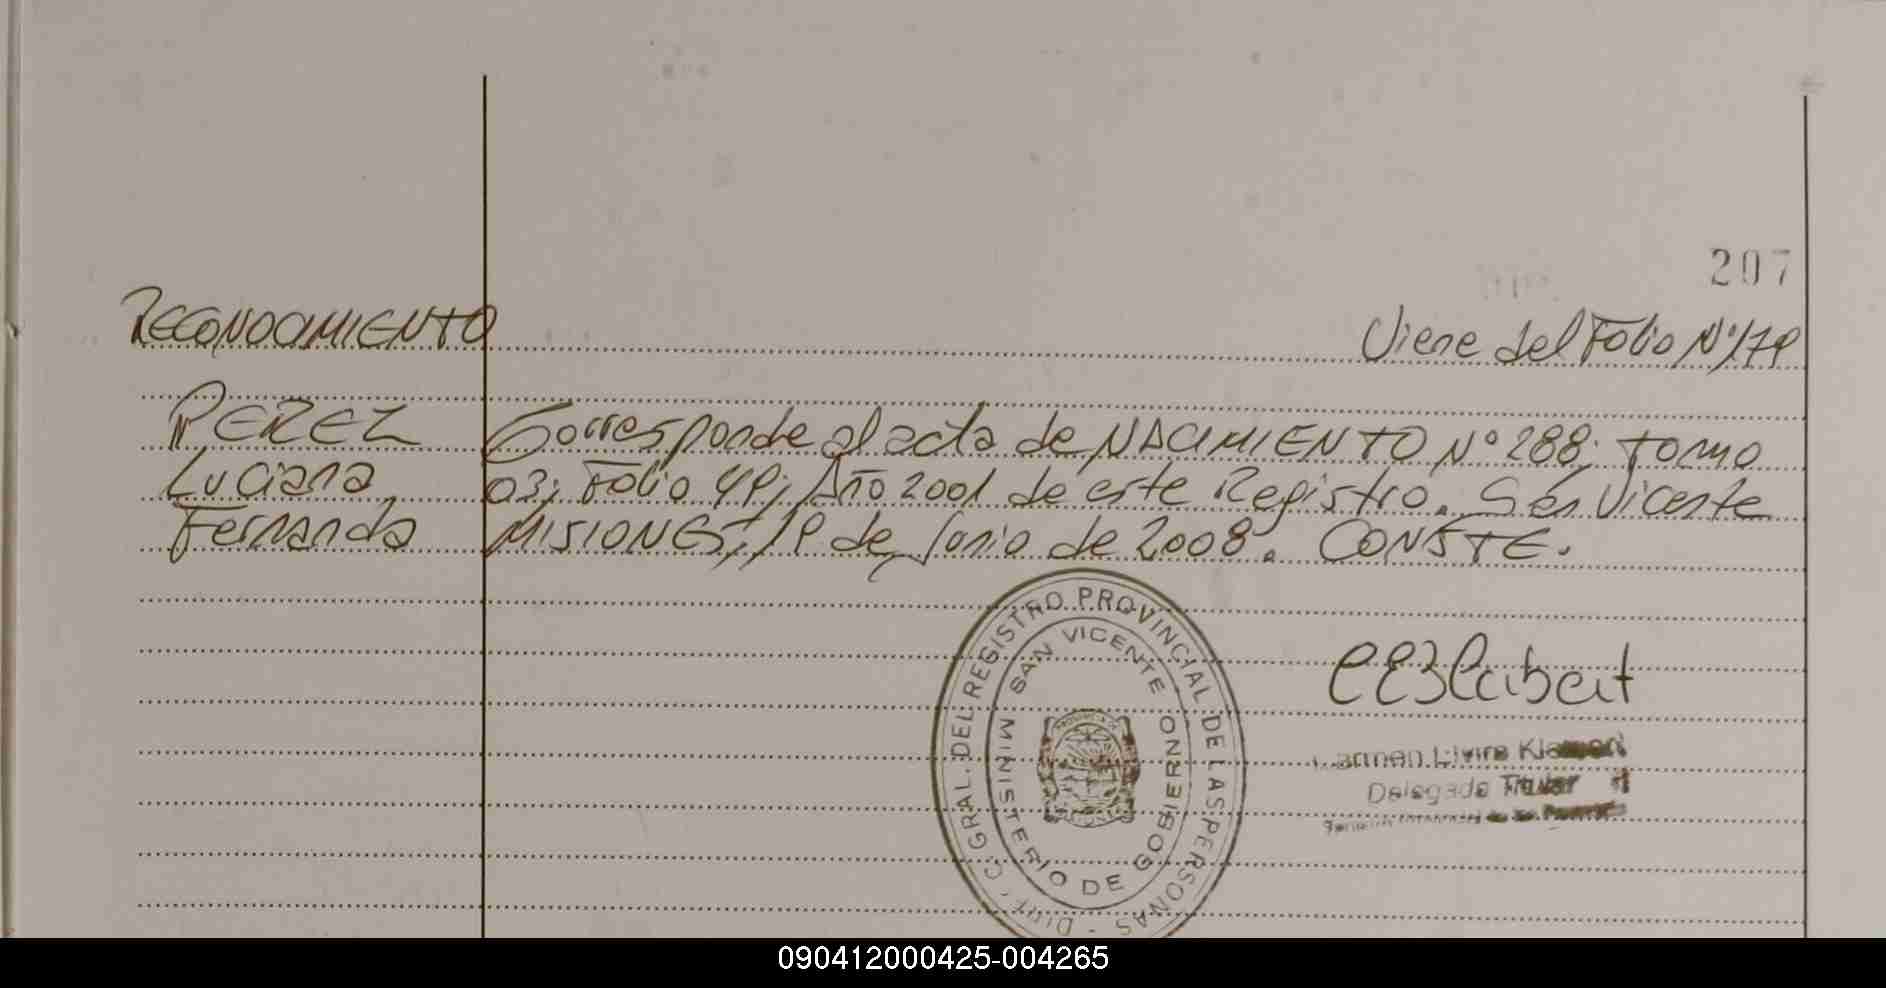 207
RECONOCIMIENTO
Viene del Folio Nº 179
PEREZ
Luciana
Fernanda
Corresponde al acta de NACIMIENTO Nº 288; Tomo
03; Folio 49; Año 2001 de este Registro. San Vicente
MISIONES, 19 de Junio de 2008. CONSTE.
C. GRAL. DEL REGISTRO PROVINCIAL DE LAS PERSONAS -
SAN VICENTE
MINISTERIO DE GOBIERNO
Carmen Elvira
Delegada Titular
090412000425-004265